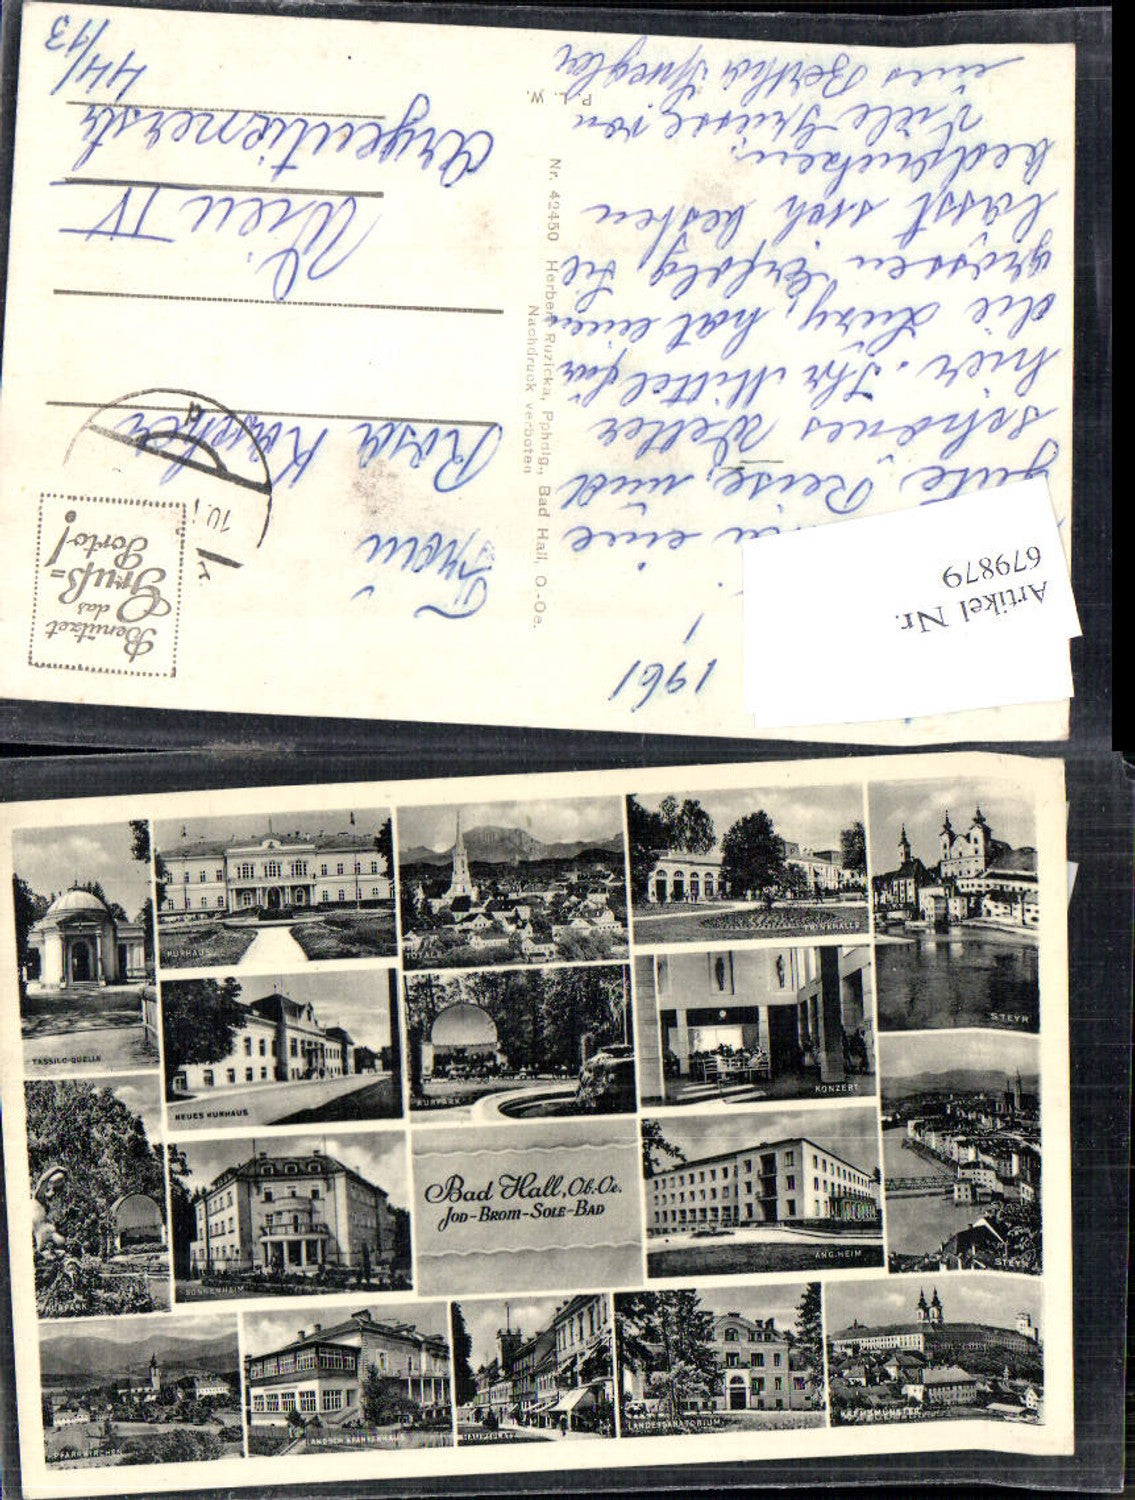 1961
eine
gute Reise, und
schönes Wetter
hier. Ihr Mittel für
die Lury, hat einen
grossen Erfolg, sie
lässt sich besten
bedanken.
Viele Grüsse von
uns Bertha
Artikel Nr.
679879
Nr. 42450 Herbert Ruzicka, Pphdlg., Bad Hall, O.-Oe.
Nachdruck verboten
P. L. W.
Benützet
das
Gruß=
Porto!
Frau
Rosa
Wien IV
Argentinierstr
44/13
TASSILO-QUELLE
KURHAUS
TOTALE
TRINKHALLE
STEYR
NEUES KURHAUS
KURPARK
KONZERT
KURPARK
SONNENHEIM
Bad Hall, Ob.-Oe.
Jod-Brom-Sole-Bad
ANG. HEIM
STEYR
PFARRKIRCHEN
LANDSCH. KRANKENHAUS
HAUPTPLATZ
LANDESSANATORIUM
KREMSMÜNSTER